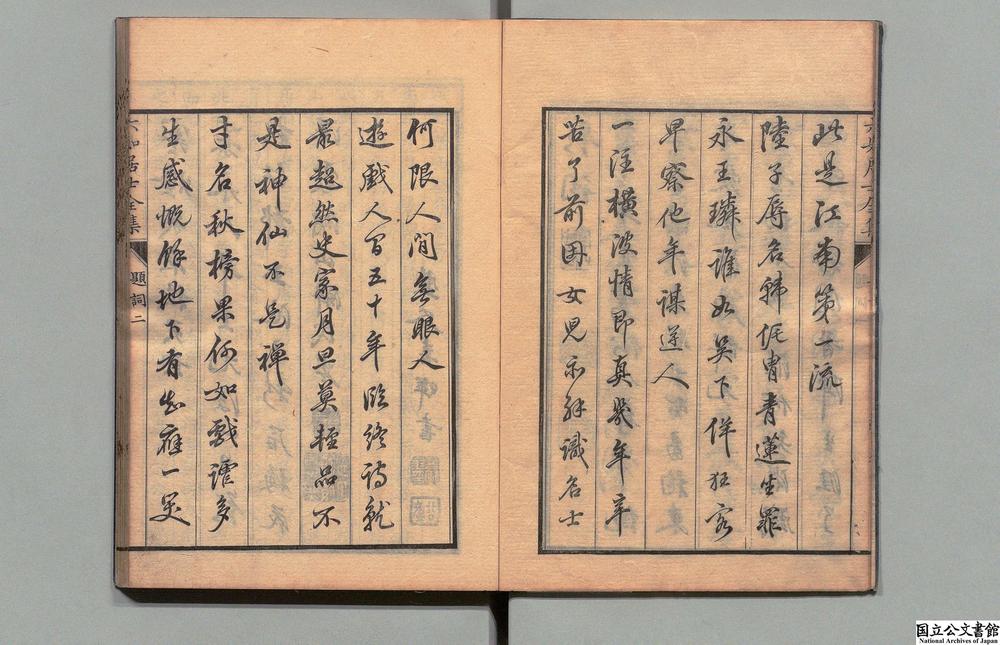 此是江南第一流
陸子辱名韓侂胄青蓮坐罪
永王璘誰如吳下佯狂客
早察他年謀逆人
一注橫波情即真幾年辛
苦了前因女兒亦解識名士
何限人間無眼人
遊戲人間五十年臨終詩就
最超然史家月旦莫輕品不
是神仙不是禪
才名秋榜果何如戲謔多
生感慨餘地下有知應一笑
六如居士全集
題詞二
国立公文書館
National Archives of Japan